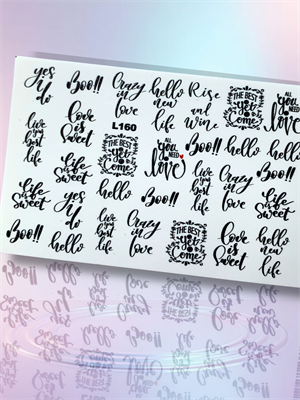 yes
Y
do
Boo!!
Crazy
in
love
hello
new
life
Rise
and
Wine
THE BEST
yet
to
Come
ALL
you
NEED
love
live
your
best
life
love
is
Sweet
L160
THE BEST
yet
to
Come
ALL
you
NEED
love
Boo!!
hello
Life
is
Sweet
hello
Boo!!
Crazy
in
love
Life
is
Sweet
yes
Y
do
live
your
best
life
Crazy
in
love
THE BEST
yet
to
Come
love
is
Sweet
hello
new
life
Boo!!
hello